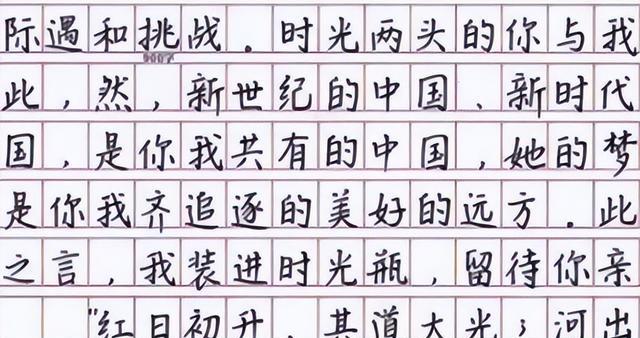 际遇和挑战．时光两头的你与我
900字
此，然，新世纪的中国、新时代
国，是你我共有的中国，她的梦
是你我齐追逐的美好的远方．此
之言，我装进时光瓶，留待你亲
"红日初升，其道大光；河出